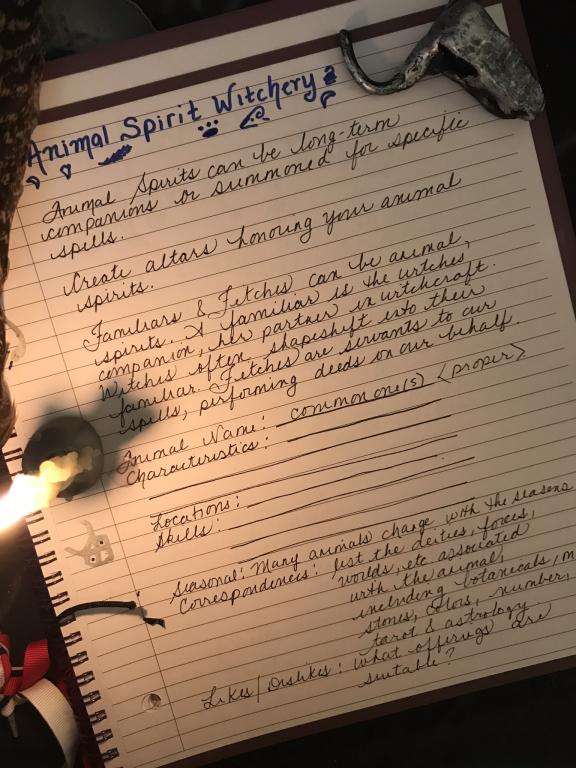 Animal Spirit Witchery
Animal Spirits can be long-term
companions or summoned for specific
spells.
Create altars honoring your animal
spirits.
Familiars & Fetches can be animal
spirits. A familiar is the witches
companion, her partner in witchcraft.
Witches often shapeshift into their
familiar. Fetches are servants to our
spells, performing deeds on our behalf.
Animal Name: common one(s) <proper>
Characteristics:
Locations:
Skills:
Seasonal: Many animals change with the seasons
Correspondences: list the deities, forces,
worlds, etc associated
with the animal,
including botanicals, m
stones, colors, number,
tarot & astrology
Likes/Dislikes: What offerings are
suitable?